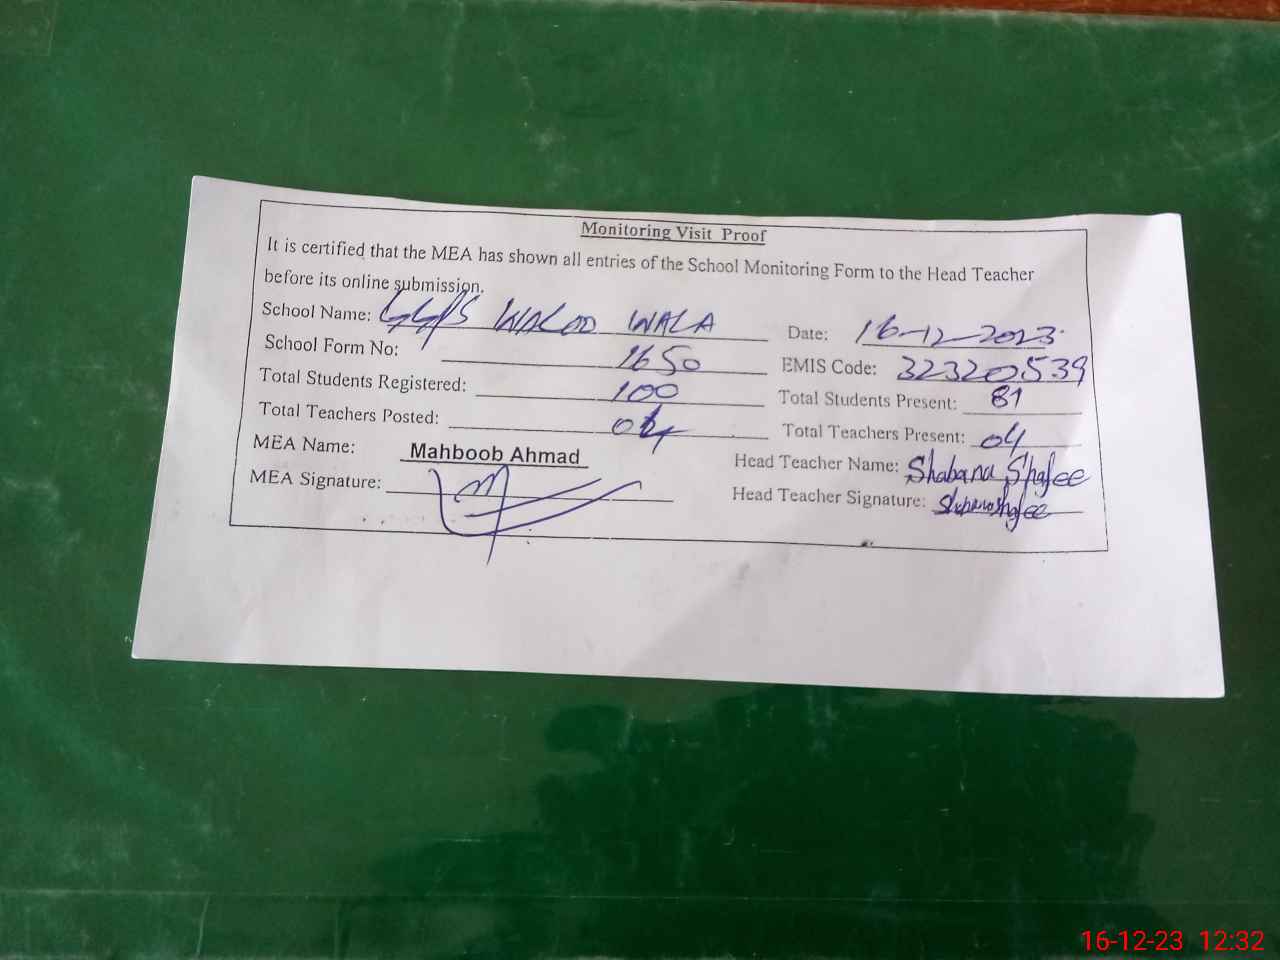 Monitoring Visit Proof
It is certified that the MEA has shown all entries of the School Monitoring Form to the Head Teacher
before its online submission.
School Name: GGPS WALOO WALA Date: 16-12-2023
School Form No: 1650 EMIS Code: 32320539
Total Students Registered: 100 Total Students Present: 81
Total Teachers Posted: 04 Total Teachers Present: 04
MEA Name: Mahboob Ahmad Head Teacher Name: Shabana Shafee
MEA Signature: Head Teacher Signature: Shabana Shafee
16-12-23 12:32